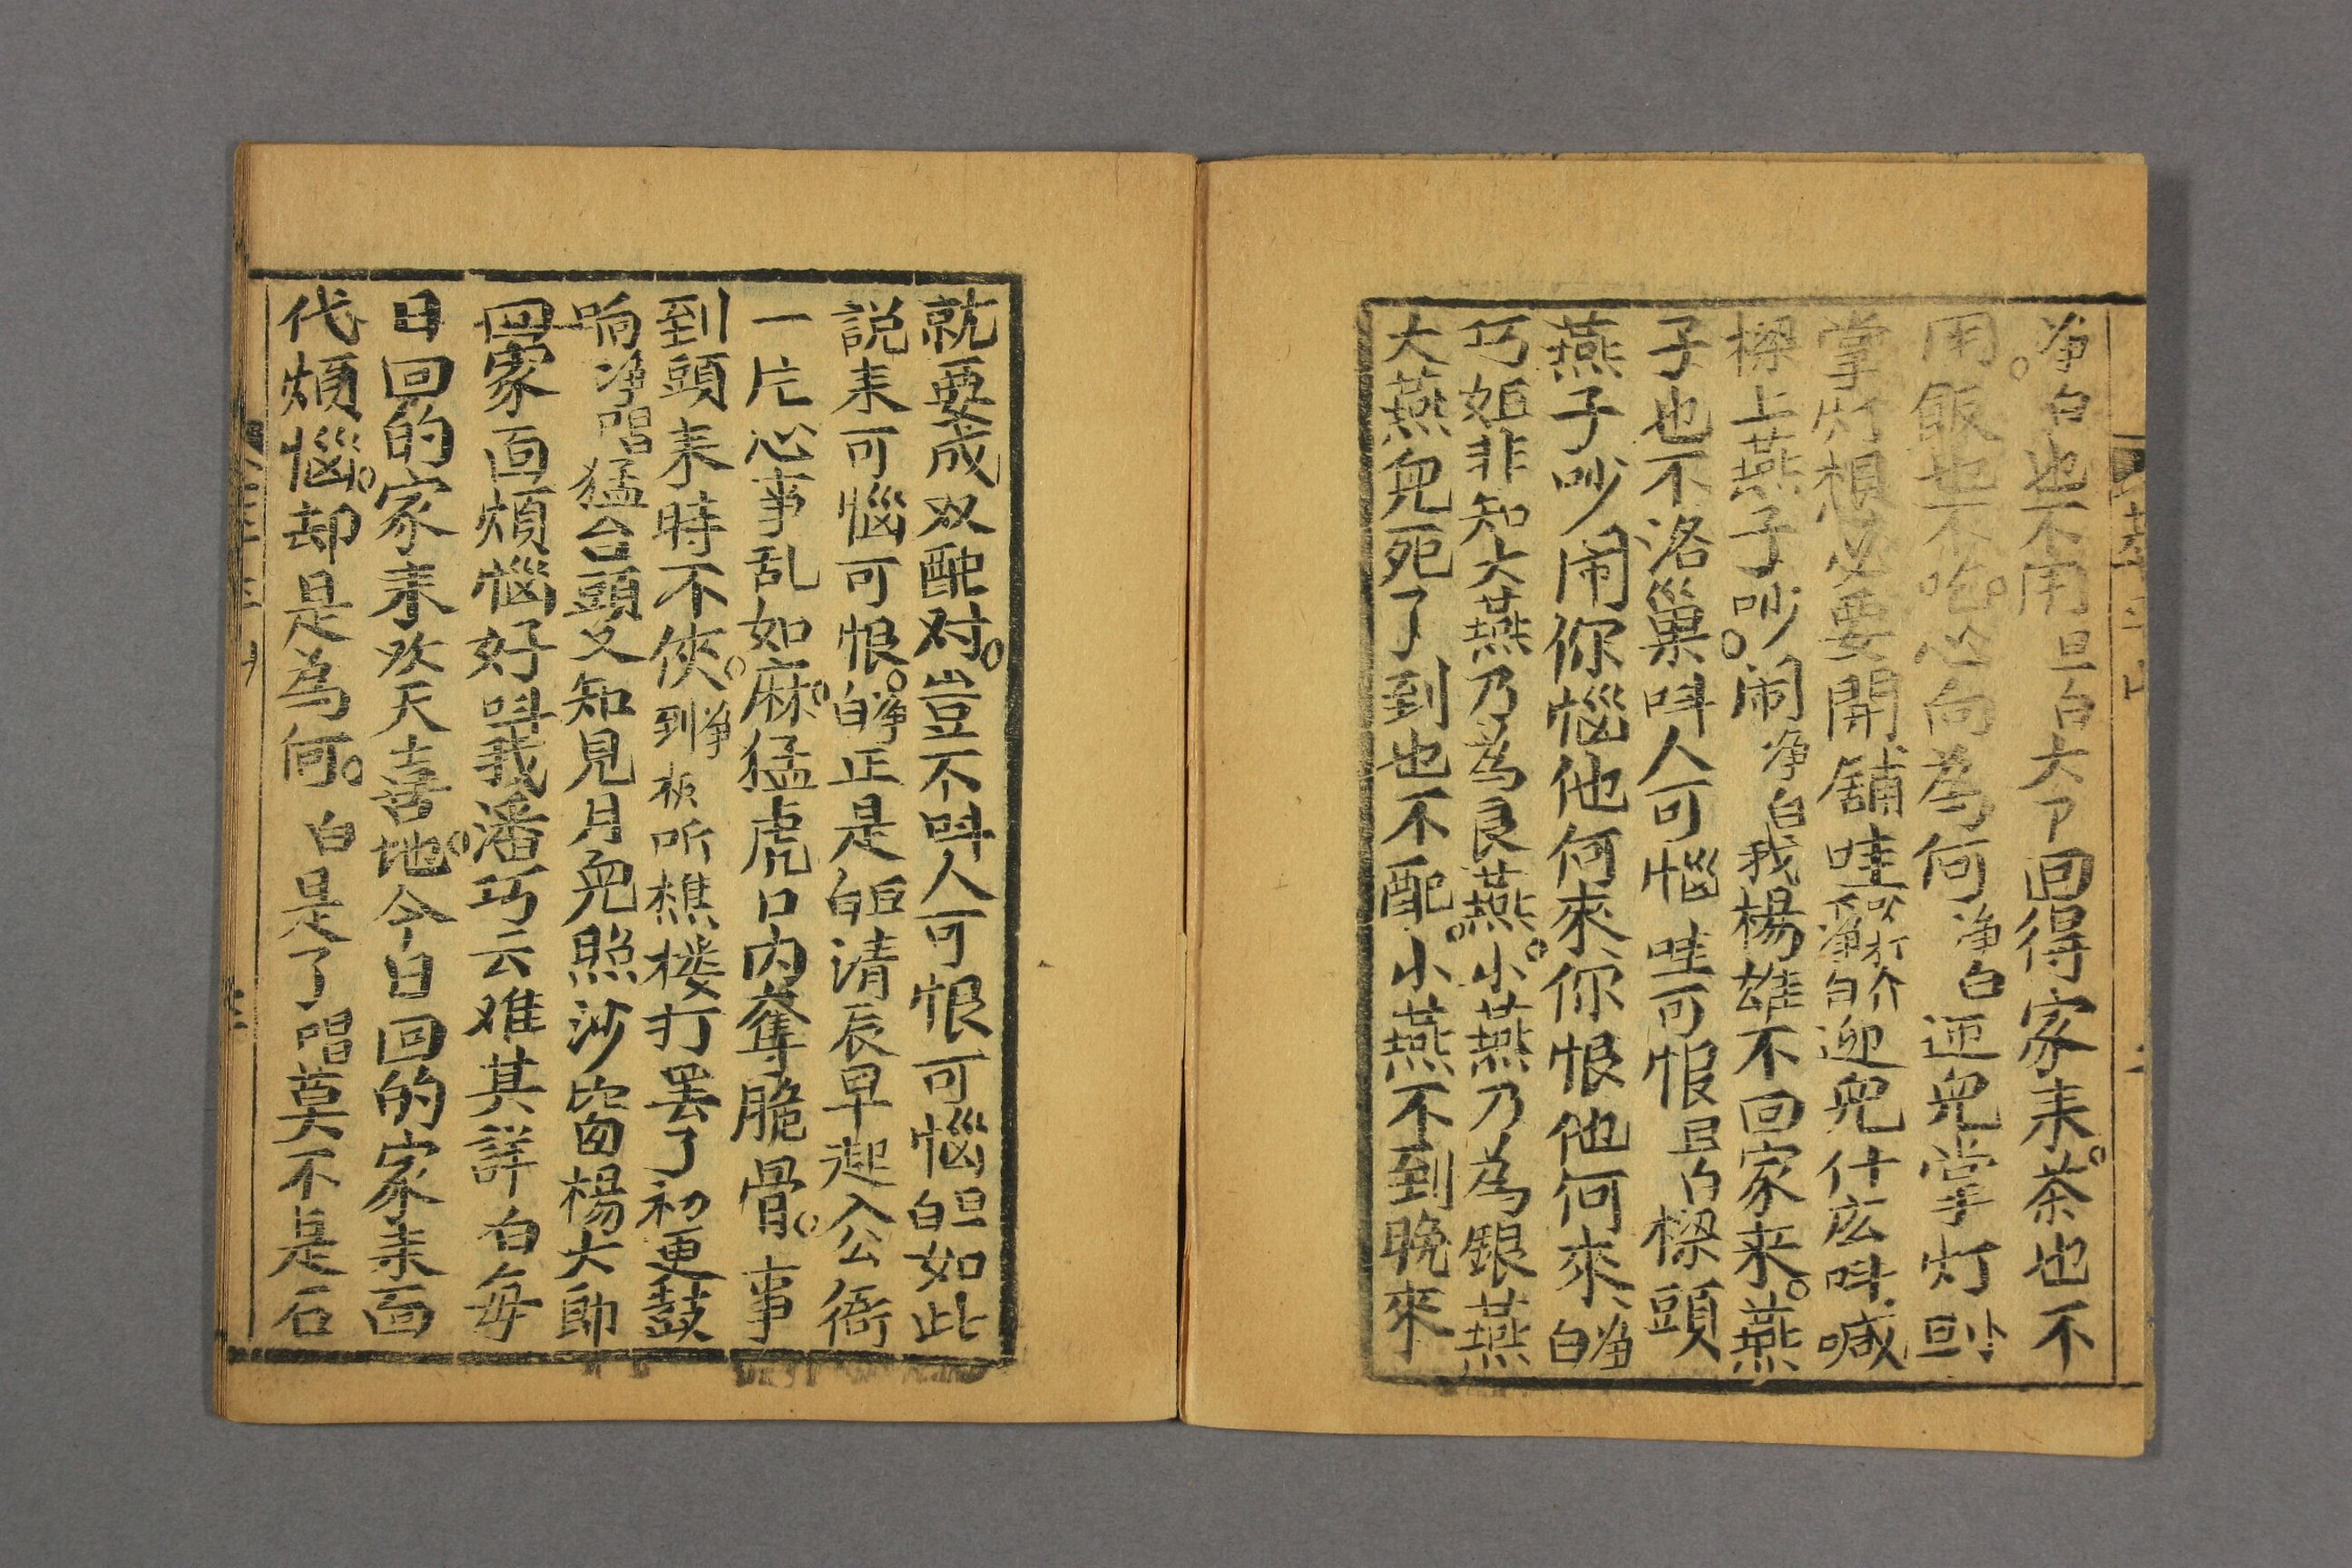 净白也不用旦白大卩回得家来茶也不
用飯也不吃心向為何净白迎兒掌灯旦
掌灯想必要開舖哇净白迎兒什庅呌喊
樑上燕子吵闹净白我楊雄不回家来燕
子也不洛巢呌人可惱哇可恨旦白樑頭
燕子吵闹你惱他何來你恨他何來净白
巧姐非知大燕乃為良燕小燕乃為銀燕
大燕兒死了到也不配小燕不到晚來
就要成双配对豈不呌人可恨可惱旦白如此
説来可惱可恨净白正是旦白清辰早起入公衙
一片心事乱如麻猛虎口内奪脆骨事
到頭来時不俠净到板听樵楼打罢了初更鼓
响净唱猛台頭又知見月兒照沙窗楊大郎
回家面煩惱好呌我潘巧云难其詳白每
日回的家来欢天喜地今日回的家来面
代煩惱却是為何白是了唱莫不是石